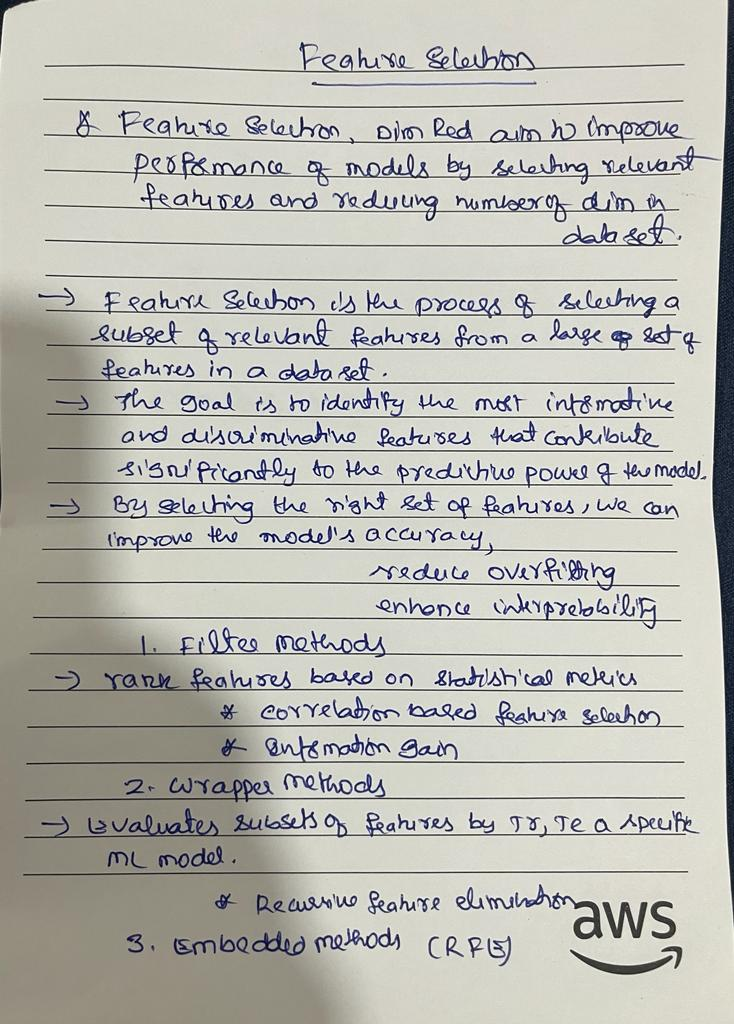 Feature Selection
* Feature Selection, Dim Red aim to improve
performance of models by selecting relevant
features and reducing number of dim in
dataset.
→ Feature Selection is the process of selecting a
subset of relevant features from a large set of
features in a dataset.
→ The goal is to identify the most informative
and discriminative features that contribute
significantly to the predictive power of the model.
→ By selecting the right set of features, we can
improve the model's accuracy,
reduce overfitting
enhance interpretability
1. Filter methods
→ rank features based on statistical metrics
* correlation based feature selection
* Information gain
2. Wrapper methods
→ Evaluates subsets of features by Tr, Te a specific
ML model.
* Recursive feature elimination
3. Embedded methods (RFE)
aws